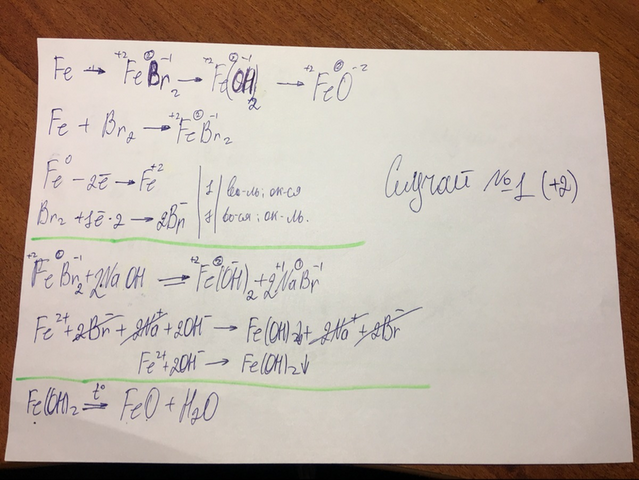 Fe → ⁺²FeBr₂⁻¹ → ⁺²Fe(OH)₂⁻¹ → ⁺²FeO⁻²
Fe + Br₂ → ⁺²FeBr₂⁻¹
Fe⁰ – 2ē → Fe⁺² | 1 | во-ль; ок-ся
Br₂ + 1ē·2 → 2Br⁻ | 1 | во-ся; ок-ль.
Случай №1 (+2)
⁺²FeBr₂⁻¹ + 2NaOH ⇒ ⁺²Fe(OH)₂⁻ + 2⁺¹NaBr⁻¹
Fe²⁺ + 2Br⁻ + 2Na⁺ + 2OH⁻ → Fe(OH)₂↓ + 2Na⁺ + 2Br⁻
Fe²⁺ + 2OH⁻ → Fe(OH)₂↓
Fe(OH)₂ =t°⇒ FeO + H₂O